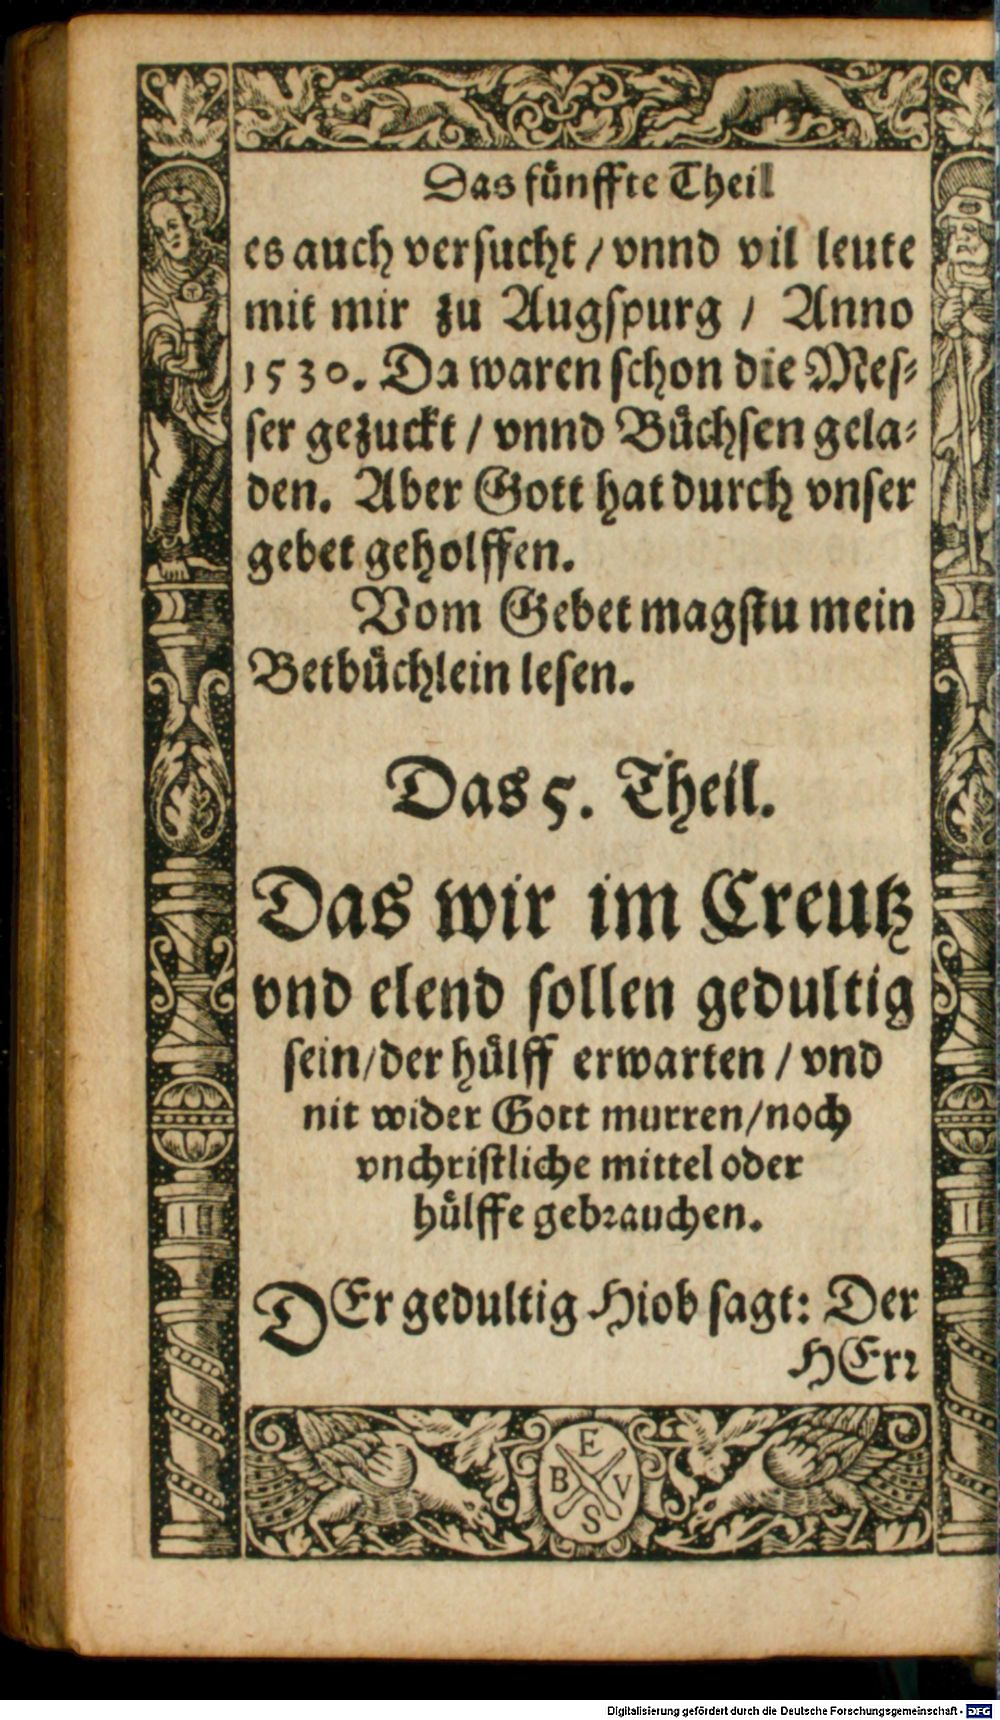 Das fuͤnffte Theil
es auch versucht / vnnd vil leute
mit mir zu Augspurg / Anno
1530. Da waren schon die Mes⸗
ser gezuckt / vnnd Buͤchsen gela⸗
den. Aber Gott hat durch vnser
gebet geholffen.
Vom Gebet magstu mein
Betbuͤchlein lesen.
Das 5. Theil.
Das wir im Creutz
vnd elend sollen gedultig
sein/der huͤlff erwarten / vnd
nit wider Gott murren/noch
vnchristliche mittel oder
huͤlffe gebꝛauchen.
DEr gedultig Hiob sagt: Der
HErꝛ
E
B V
S
Digitalisierung gefördert durch die Deutsche Forschungsgemeinschaft - DFG